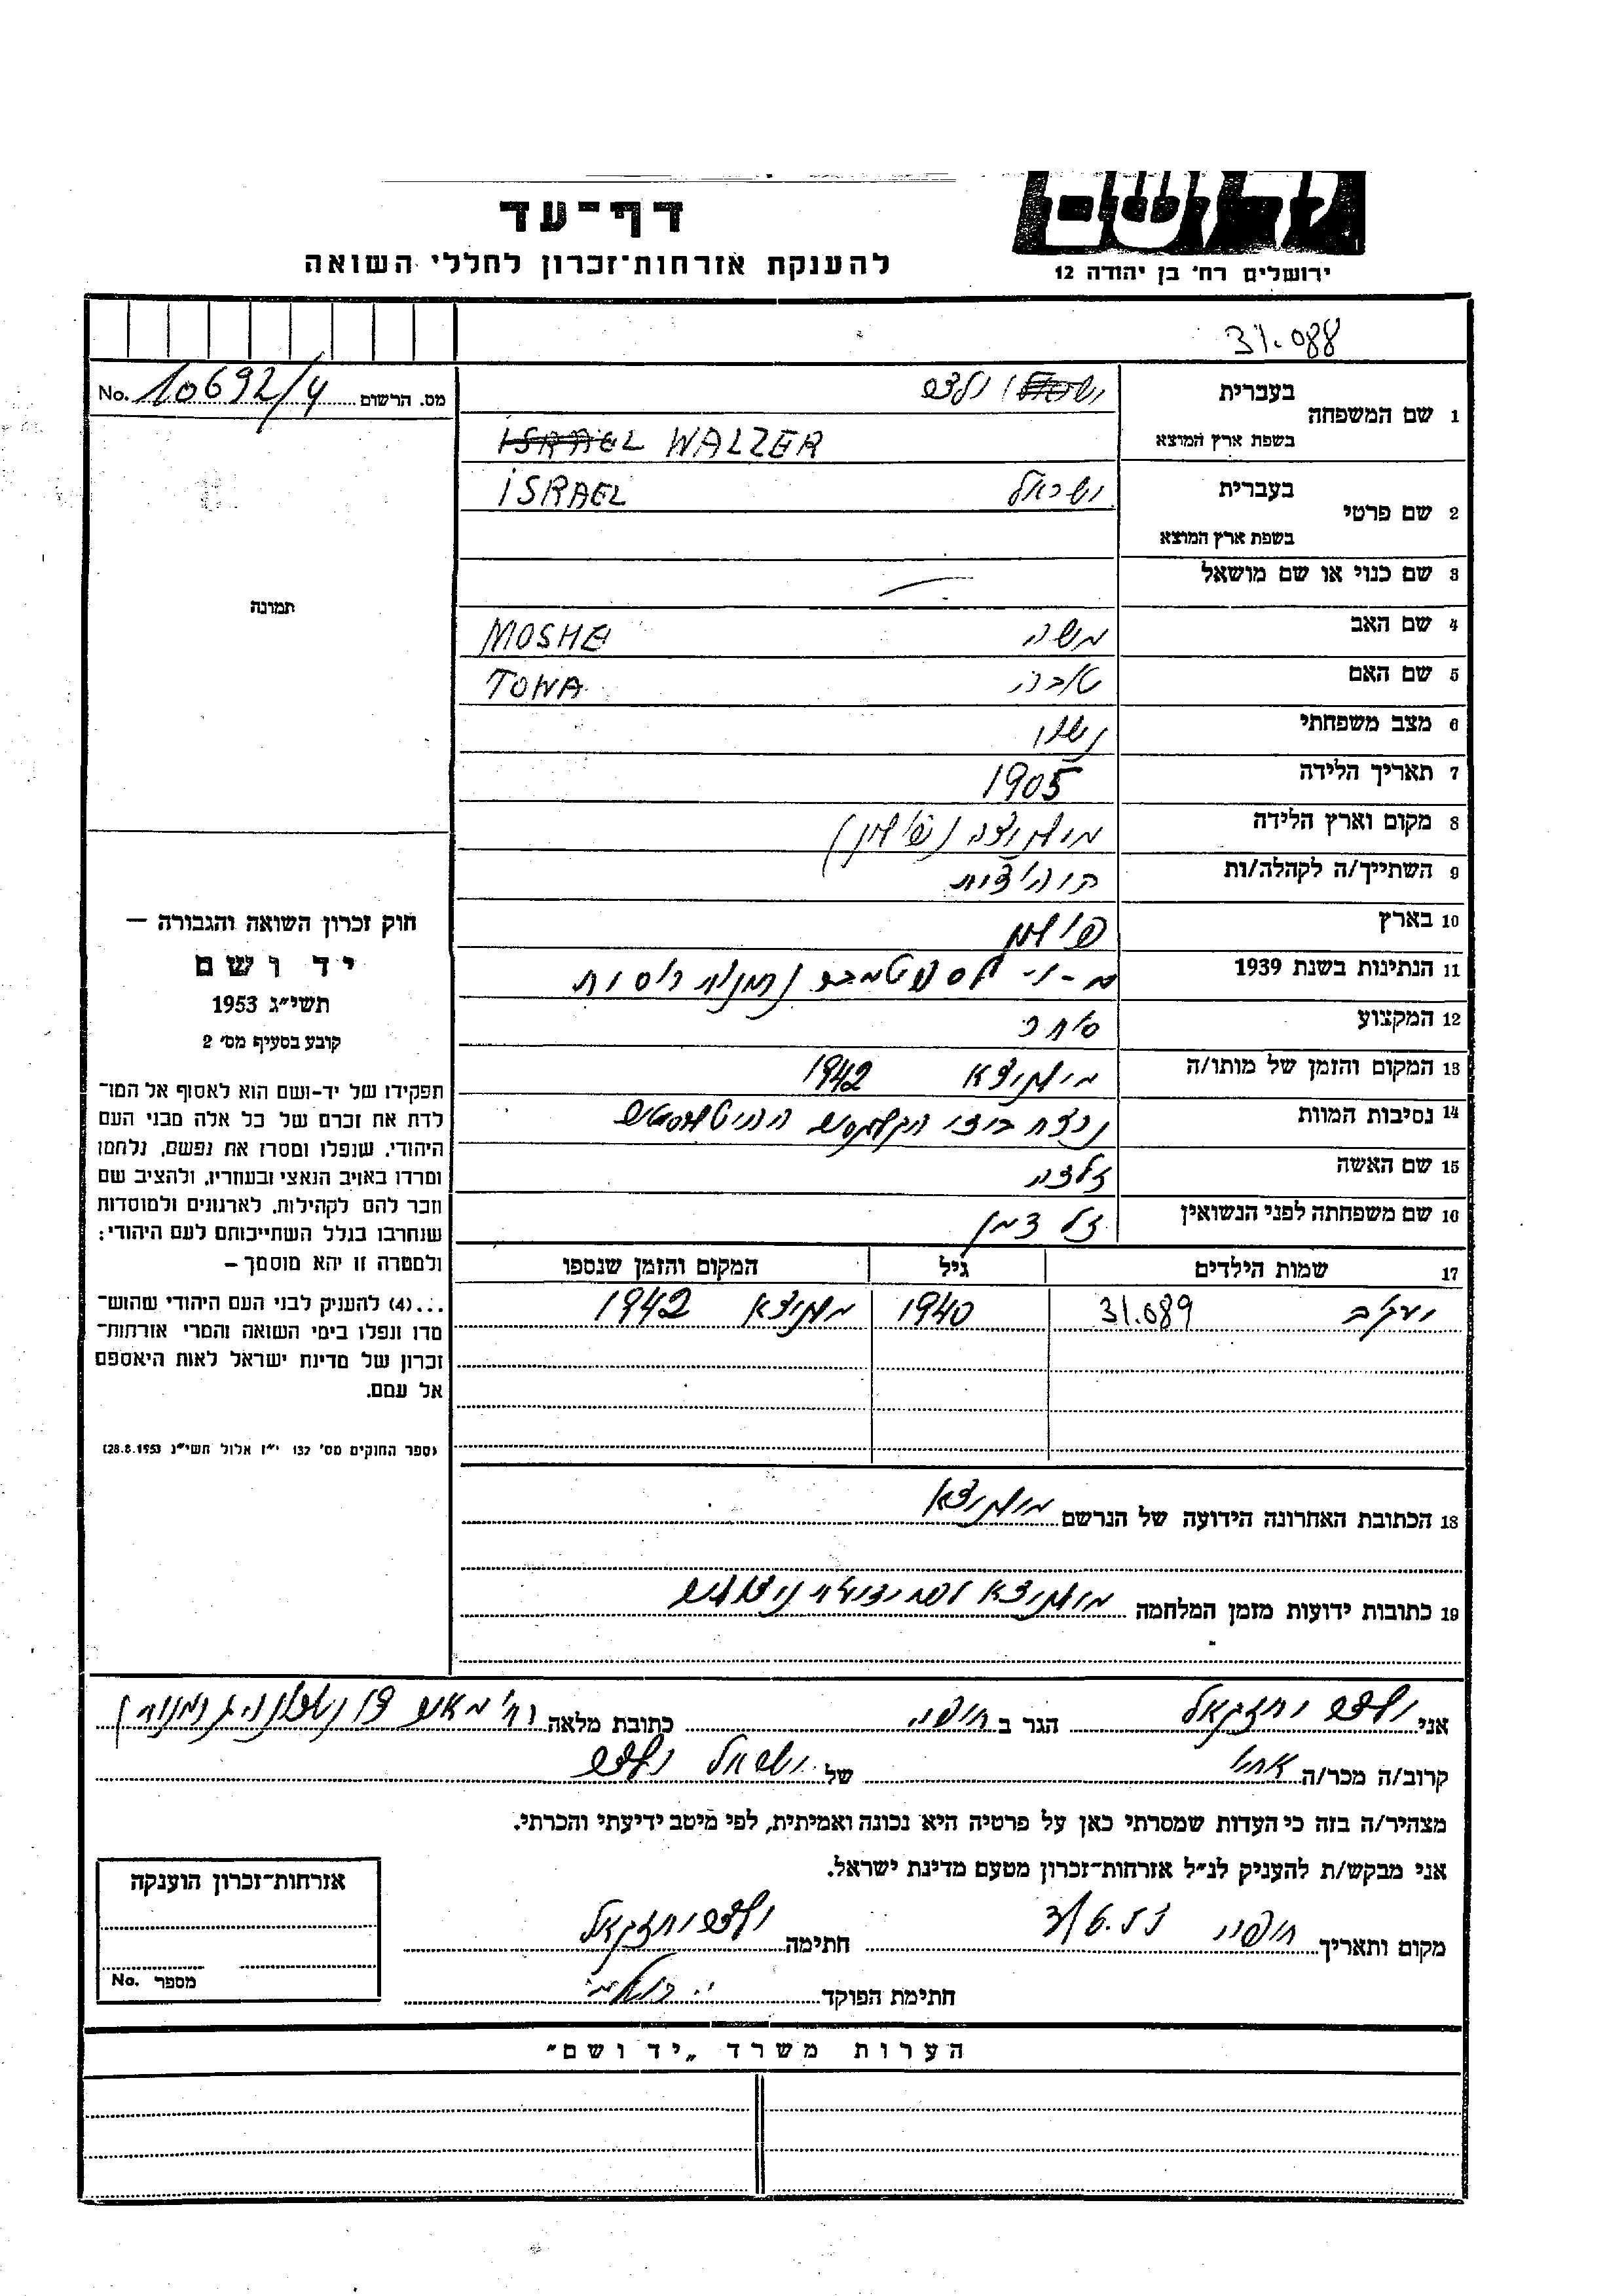 דף-עד
להענקת אזרחות־זכרון לחללי השואה
ירושלים רח׳ בן יהודה 12
31.088
1 שם המשפחה
בעברית
ולצר
בשפת ארץ המוצא
ISRAEL WALZER
2 שם פרטי
בעברית
ישראל ISRAEL
בשפת ארץ המוצא
3 שם כנוי או שם מושאל
4 שם האב משה MOSHE
5 שם האם טובה TOWA
6 מצב משפחתי נשוי
7 תאריך הלידה 1905
8 מקום וארץ הלידה (פולין)
9 השתייך/ה לקהלה/ות
10 בארץ פולין
11 הנתינות בשנת 1939
12 המקצוע סוחר
13 המקום והזמן של מותו/ה 1942
14 נסיבות המוות נרצח בידי
15 שם האשה זלדה
16 שם משפחתה לפני הנשואין זלצמן
17 שמות הילדים גיל המקום והזמן שנספו
יעקב 31.089 1940 1942
18 הכתובת האחרונה הידועה של הנרשם
19 כתובות ידועות מזמן המלחמה
מס. הרשום No. 10692/4
תמונה
חוק זכרון השואה והגבורה –
יד ושם
תשי״ג 1953
קובע בסעיף מס׳ 2
תפקידו של יד-ושם הוא לאסוף אל המו־
לדת את זכרם של כל אלה מבני העם
היהודי, שנפלו ומסרו את נפשם, נלחמו
ומרדו באויב הנאצי ובעוזריו, ולהציב שם
וזכר להם לקהילות, לארגונים ולמוסדות
שנחרבו בגלל השתייכותם לעם היהודי;
ולמטרה זו יהא מוסמך –
...(4) להעניק לבני העם היהודי שהוש־
מדו ונפלו בימי השואה והמרי אזרחות־
זכרון של מדינת ישראל לאות היאספם
אל עמם.
(ספר החוקים מס׳ 132 י״ז אלול תשי״ג 28.8.1953)
אני ולצר יחזקאל הגר ב חיפה כתובת מלאה
קרוב/ה מכר/ה אחיו של ישראל ולצר
מצהיר/ה בזה כי העדות שמסרתי כאן על פרטיה היא נכונה ואמיתית, לפי מיטב ידיעתי והכרתי.
אני מבקש/ת להעניק לנ״ל אזרחות-זכרון מטעם מדינת ישראל.
מקום ותאריך חיפה חתימה ולצר יחזקאל
חתימת הפוקד
אזרחות־זכרון הוענקה
מספר No.
הערות משרד „יד ושם״